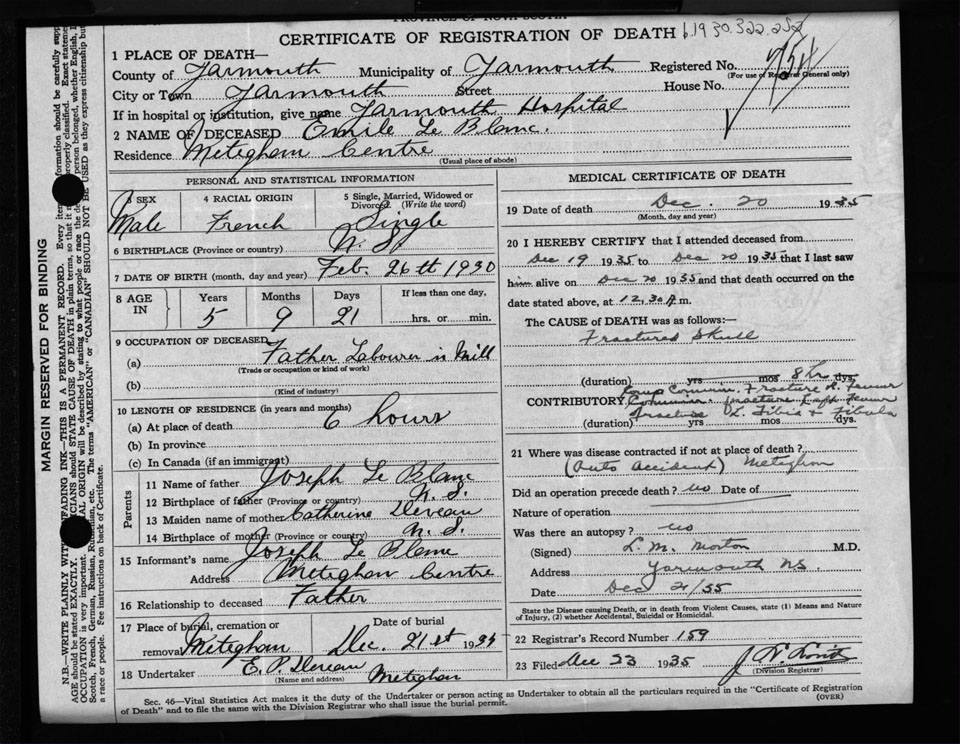 PROVINCE OF NOVA SCOTIA
CERTIFICATE OF REGISTRATION OF DEATH
1 PLACE OF DEATH—
County of Yarmouth Municipality of Yarmouth Registered No. 754
(For use of Registrar General only)
City or Town Yarmouth Street House No.
If in hospital or institution, give name Yarmouth Hospital
2 NAME OF DECEASED Emile Le Blanc.
Residence Meteghan Centre
(Usual place of abode)
PERSONAL AND STATISTICAL INFORMATION
3 SEX Male
4 RACIAL ORIGIN French
5 Single, Married, Widowed or Divorced. (Write the word) Single
6 BIRTHPLACE (Province or country) N. S.
7 DATE OF BIRTH (month, day and year) Feb. 26th 1930
8 AGE IN Years 5 Months 9 Days 21
If less than one day, hrs. or min.
9 OCCUPATION OF DECEASED
(a) Father Labourer in Mill
(Trade or occupation or kind of work)
(b)
(Kind of industry)
10 LENGTH OF RESIDENCE (in years and months)
(a) At place of death 6 hours
(b) In province
(c) In Canada (if an immigrant)
Parents
11 Name of father Joseph Le Blanc
12 Birthplace of father (Province or country) N. S.
13 Maiden name of mother Catherine Deveau
14 Birthplace of mother (Province or country) N. S.
15 Informant's name Joseph Le Blanc
Address Meteghan Centre
16 Relationship to deceased Father
17 Place of burial, cremation or removal Meteghan
Date of burial Dec. 21st 1935
18 Undertaker E. P. Deveau Meteghan
(Name and address)
MEDICAL CERTIFICATE OF DEATH
19 Date of death Dec. 20 1935
(Month, day and year)
20 I HEREBY CERTIFY that I attended deceased from
Dec 19 1935 to Dec 20 1935 that I last saw
him alive on Dec 20 1935 and that death occurred on the
date stated above, at 12,30 A m.
The CAUSE of DEATH was as follows:—
Fractured Skull
(duration) yrs mos 8 hrs dys.
Comp Commin. Fracture R. Femur
CONTRIBUTORY Commin. fracture Left Femur
Fracture L. Tibia & Fibula
(duration) yrs mos dys.
21 Where was disease contracted if not at place of death?
(Auto Accident) Meteghan
Did an operation precede death? no Date of
Nature of operation
Was there an autopsy? no
(Signed) L. M. Morton M.D.
Address Yarmouth NS.
Date Dec 21/35
State the Disease causing Death, or in death from Violent Causes, state (1) Means and Nature
of Injury, (2) whether Accidental, Suicidal or Homicidal.
22 Registrar's Record Number 159
23 Filed Dec 23 1935
(Division Registrar)
Sec. 46—Vital Statistics Act makes it the duty of the Undertaker or person acting as Undertaker to obtain all the particulars required in the "Certificate of Registration
of Death" and to file the same with the Division Registrar who shall issue the burial permit.
(OVER)
MARGIN RESERVED FOR BINDING
N.B.—WRITE PLAINLY WITH FADING INK—THIS IS A PERMANENT RECORD. Every item formation should be carefully supp
AGE should be stated EXACTLY. ICIANS should STATE CAUSE OF DEATH in plain terms, so that it properly classified. Exact statemen
OCCUPATION is very important. AL ORIGIN will be described by stating to what people or race the de person belonged, whether English, I
Scotch, French, German, Russian, Ruthenian, etc. The terms "AMERICAN" or "CANADIAN" SHOULD NOT BE USED as they express citizenship but
a race or people. See instructions on back of Certificate.